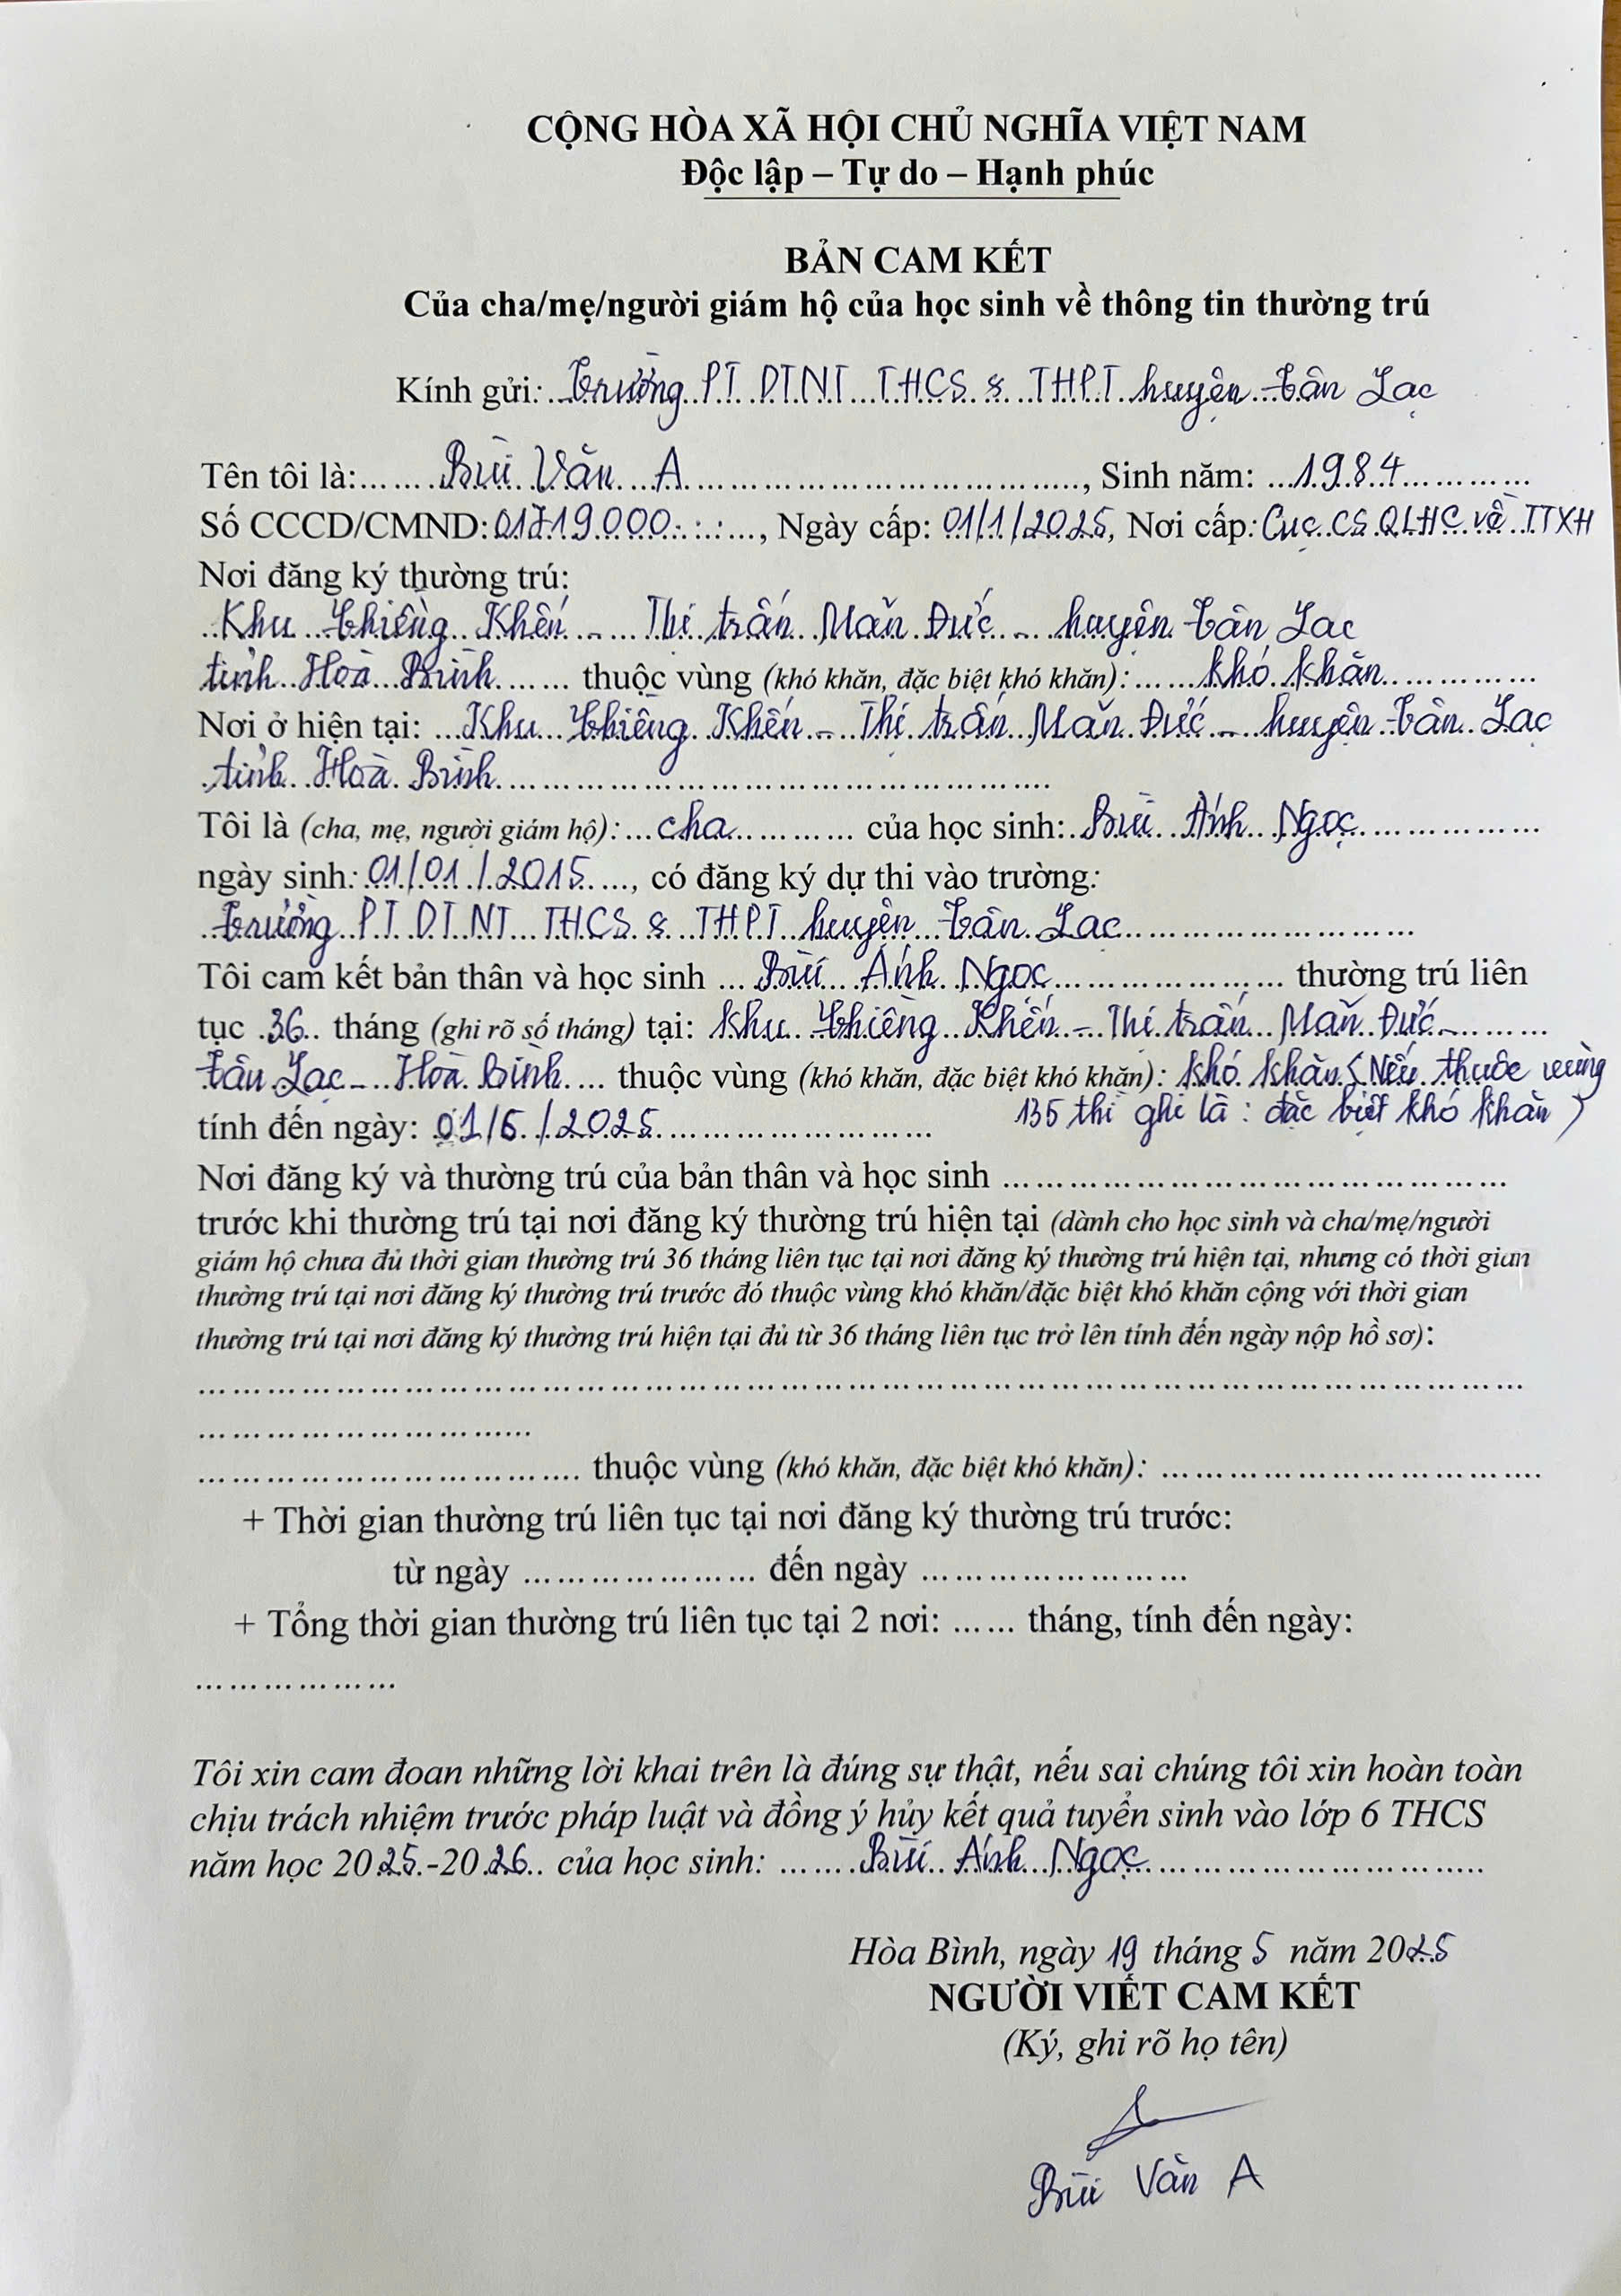 CỘNG HÒA XÃ HỘI CHỦ NGHĨA VIỆT NAM
Độc lập – Tự do – Hạnh phúc
BẢN CAM KẾT
Của cha/mẹ/người giám hộ của học sinh về thông tin thường trú
Kính gửi: Trường PT DTNT THCS & THPT huyện Tân Lạc
Tên tôi là: Bùi Văn A, Sinh năm: 1984
Số CCCD/CMND: 01719.000..., Ngày cấp: 01/1/2025, Nơi cấp: Cục CS QLHC về TTXH
Nơi đăng ký thường trú:
Khu Chiềng Khến - Thị trấn Mãn Đức - huyện Tân Lạc
tỉnh Hoà Bình thuộc vùng (khó khăn, đặc biệt khó khăn): khó khăn
Nơi ở hiện tại: Khu Chiềng Khến - Thị trấn Mãn Đức - huyện Tân Lạc
tỉnh Hoà Bình
Tôi là (cha, mẹ, người giám hộ): cha của học sinh: Bùi Ánh Ngọc
ngày sinh: 01/01/2015, có đăng ký dự thi vào trường:
Trường PT DTNT THCS & THPT huyện Tân Lạc
Tôi cam kết bản thân và học sinh Bùi Ánh Ngọc thường trú liên
tục 36 tháng (ghi rõ số tháng) tại: khu Chiềng Khến - Thị trấn Mãn Đức -
Tân Lạc - Hoà Bình thuộc vùng (khó khăn, đặc biệt khó khăn): khó khăn (Nếu thuộc vùng
135 thì ghi là : đặc biệt khó khăn)
tính đến ngày: 01/6/2025
Nơi đăng ký và thường trú của bản thân và học sinh ……………………………………
trước khi thường trú tại nơi đăng ký thường trú hiện tại (dành cho học sinh và cha/mẹ/người
giám hộ chưa đủ thời gian thường trú 36 tháng liên tục tại nơi đăng ký thường trú hiện tại, nhưng có thời gian
thường trú tại nơi đăng ký thường trú trước đó thuộc vùng khó khăn/đặc biệt khó khăn cộng với thời gian
thường trú tại nơi đăng ký thường trú hiện tại đủ từ 36 tháng liên tục trở lên tính đến ngày nộp hồ sơ):
……………………………………………………………………………………
………………………...
……………………………. thuộc vùng (khó khăn, đặc biệt khó khăn): …………………………….
+ Thời gian thường trú liên tục tại nơi đăng ký thường trú trước:
từ ngày ………………… đến ngày ……………………
+ Tổng thời gian thường trú liên tục tại 2 nơi: …… tháng, tính đến ngày:
………………
Tôi xin cam đoan những lời khai trên là đúng sự thật, nếu sai chúng tôi xin hoàn toàn
chịu trách nhiệm trước pháp luật và đồng ý hủy kết quả tuyển sinh vào lớp 6 THCS
năm học 2025-2026 của học sinh: Bùi Ánh Ngọc
Hòa Bình, ngày 19 tháng 5 năm 2025
NGƯỜI VIẾT CAM KẾT
(Ký, ghi rõ họ tên)
Bùi Văn A